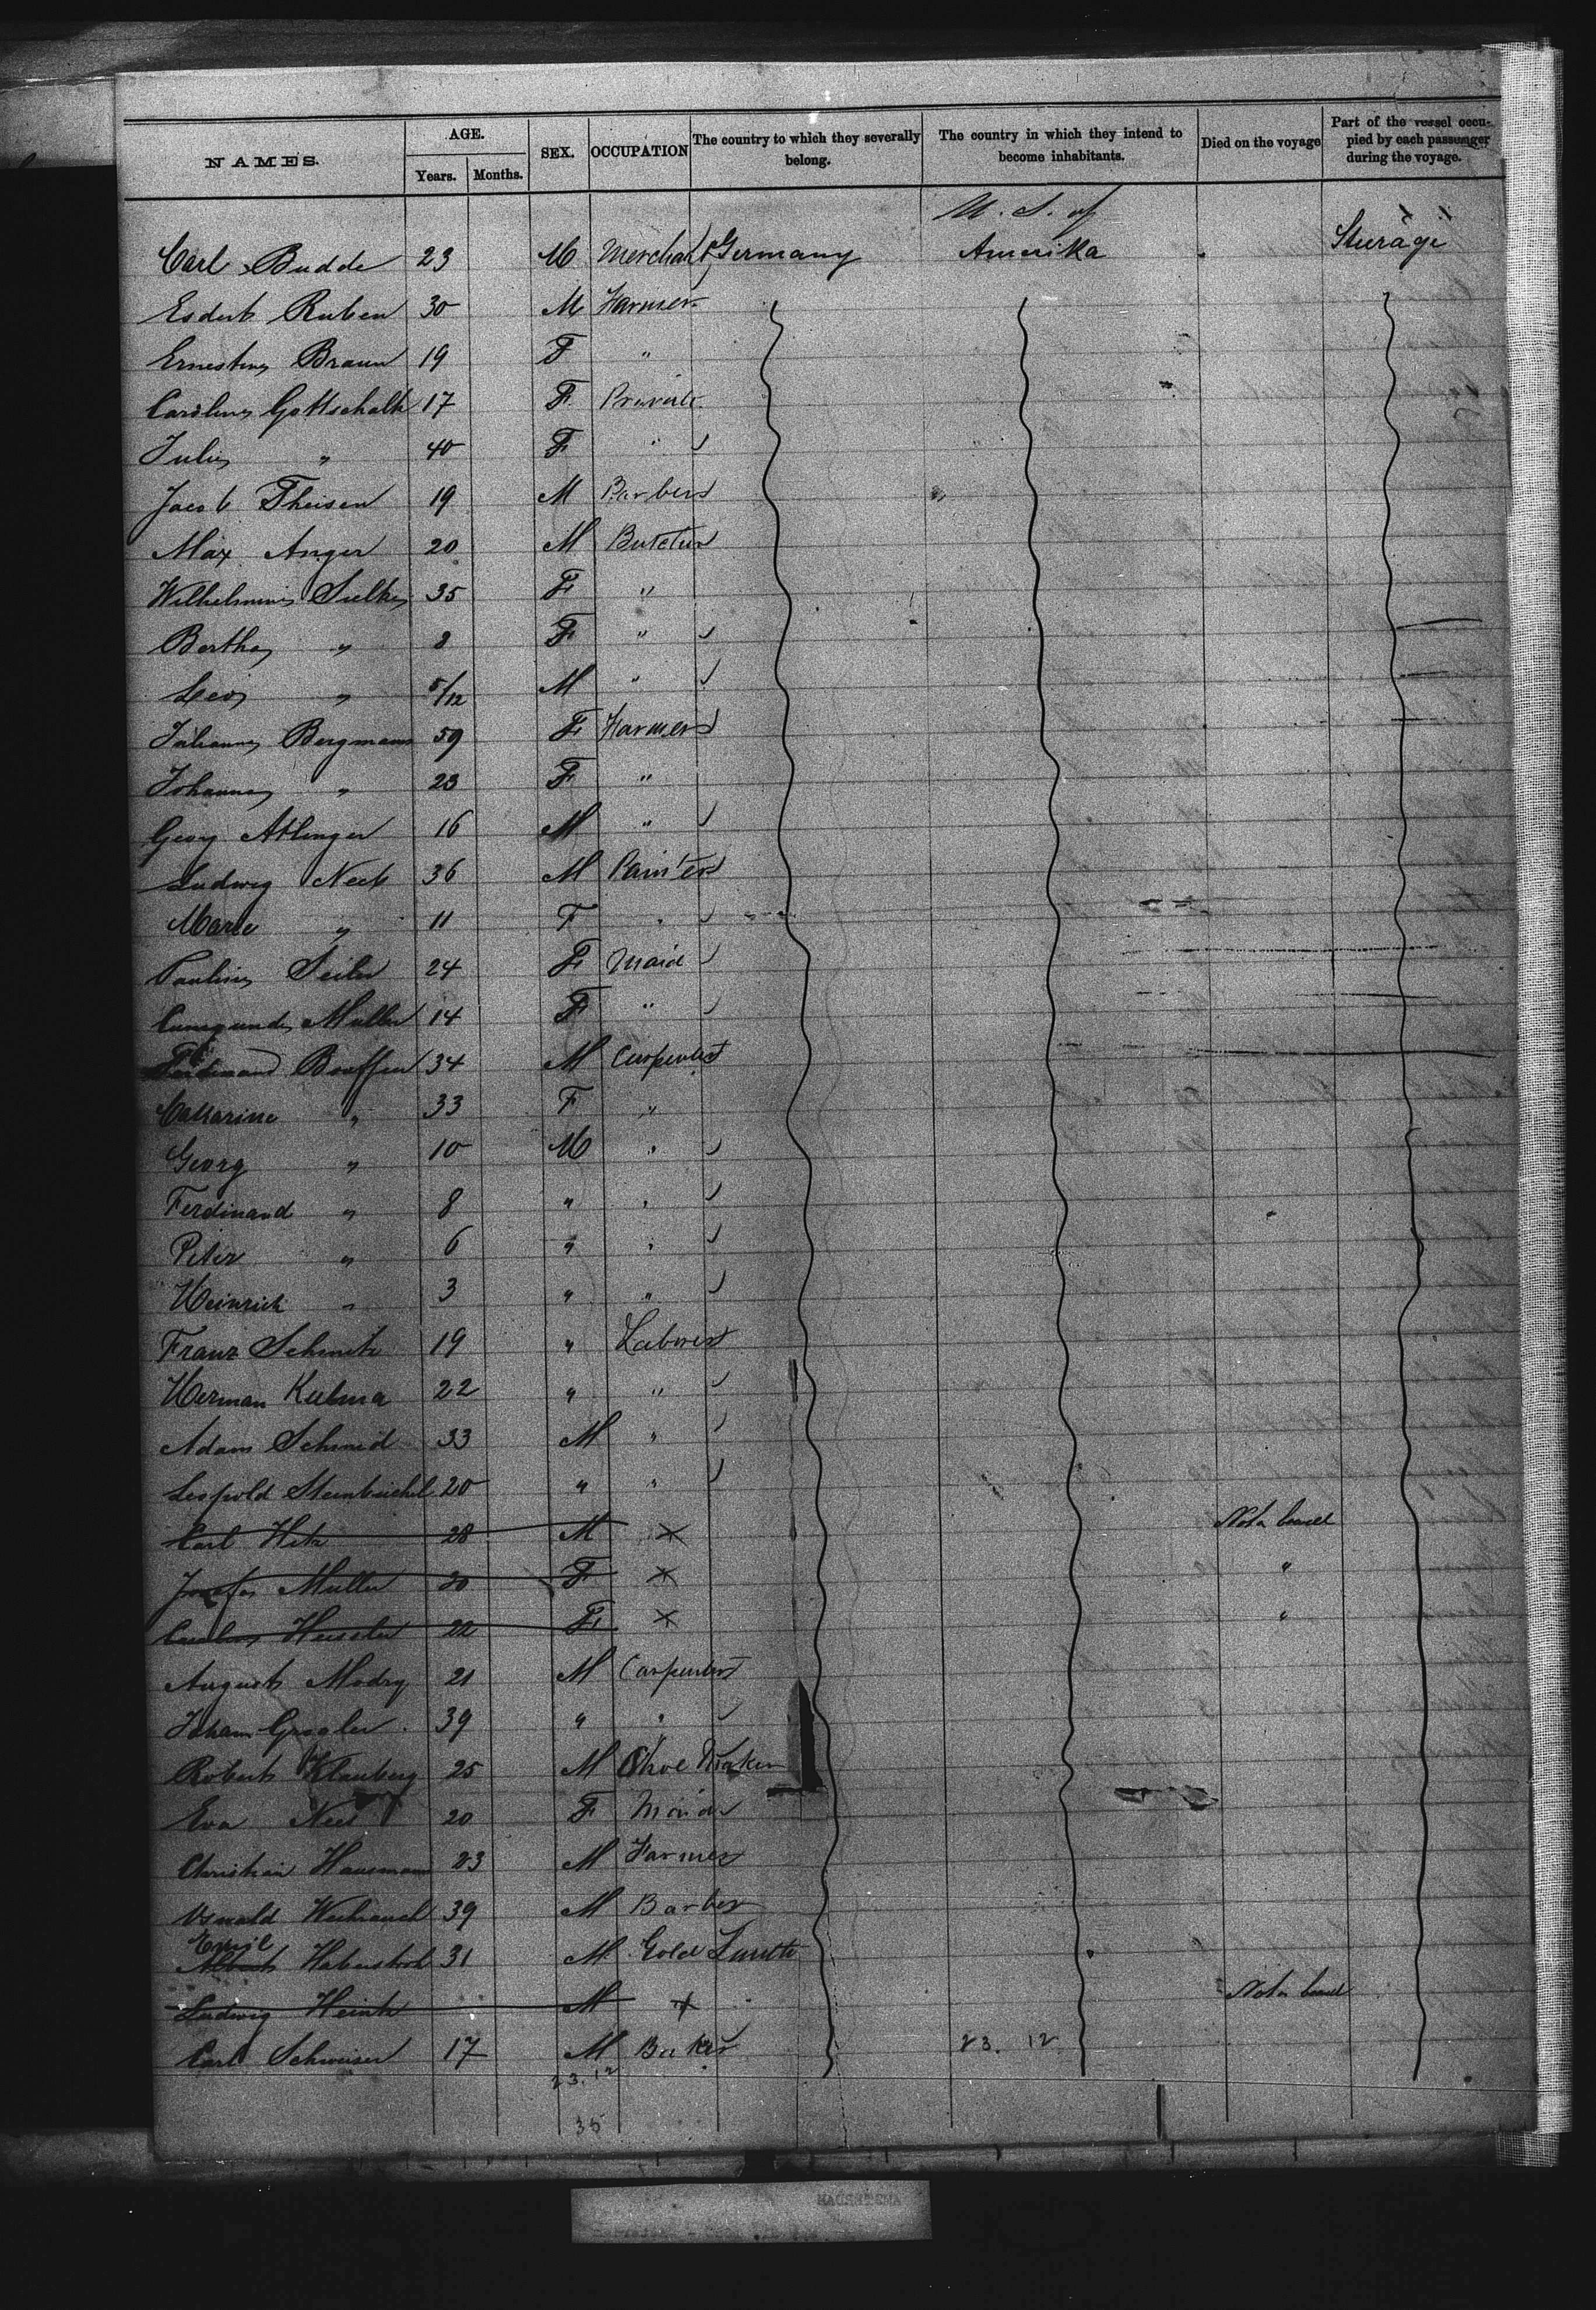 NAMES. AGE. Years. Months. SEX. OCCUPATION The country to which they severally belong. The country in which they intend to become inhabitants. Died on the voyage Part of the vessel occupied by each passenger during the voyage.
U. S. of
Carl Budde 23 M Merchant Germany Amerika Steráge
Esdert Ruben 30 M Farmer
Ernestine Braun 19 F "
Caroline Gottschalk 17 F Private
Julie " 40 F "
Jacob Theisen 19 M Barber
Max Anger 20 M Butcher
Wilhelmine Sielke 35 F "
Bertha " 8 F "
Leo " 5/12 M "
Johanne Bergmann 59 F Farmer
Johanne " 23 F "
Georg Attinger 16 M "
Ludwig Neeb 36 M Painter
Marie " 11 F "
Pauline Seiler 24 F Maid
Cunegunde Muller 14 F "
Ferdinand 34 M Carpenter
Catharine " 33 F "
Georg " 10 M "
Ferdinand " 8 " "
Peter " 6 " "
Heinrich " 3 " "
Franz Schmitz 19 " Laborer
Herman Kulma 22 " "
Adam Schmid 33 M "
Leopold Steinbüchel 20 " "
Carl Hitz 28 M × Not on board
Josefa Muller 20 F × "
Caroline Heissler 22 F × "
August Modry 21 M Carpenter
Johann 39 " "
Robert Klauberg 25 M Shoe Maker
Eva Nees 20 F Maid
Christian Hausmann 23 M Farmer
Oswald Weihrauch 39 M Barber
Emil
Albert Habenstroh 31 M Gold Smith
Ludwig Heintz M × Not on board
Carl Schweiser 17 M Baker 23. 12
23. 12
35